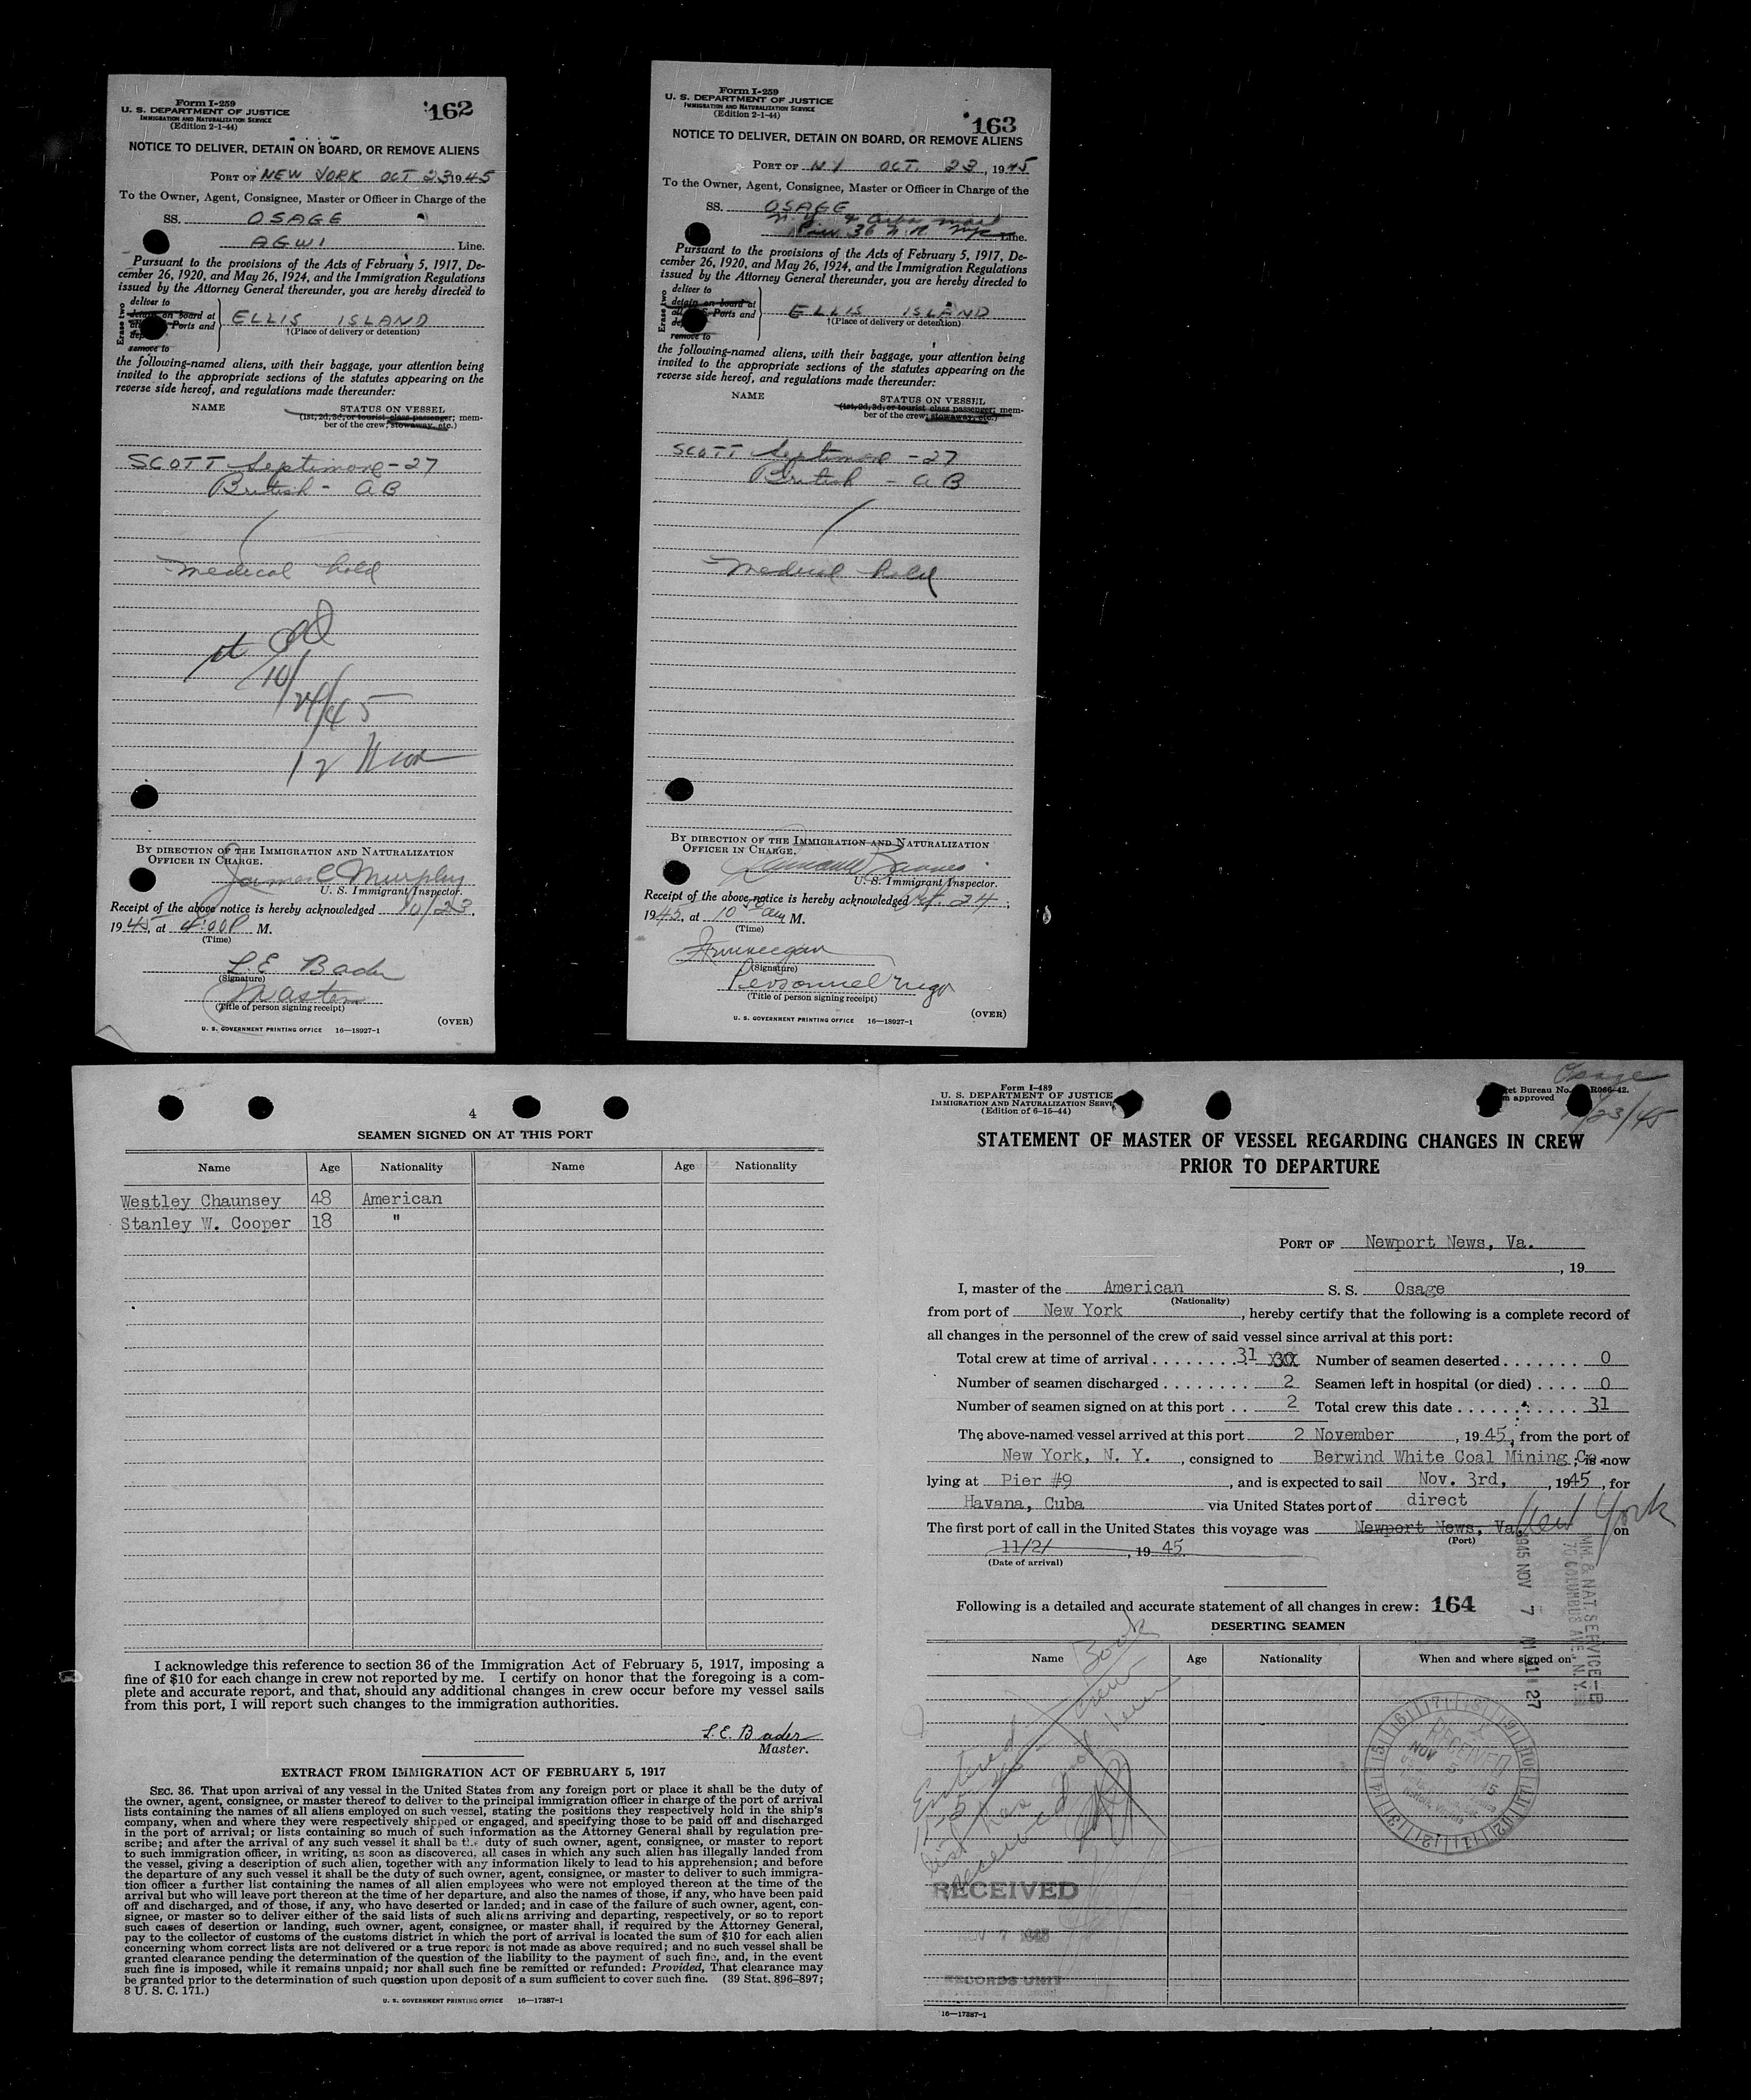 Form I-259
U. S. DEPARTMENT OF JUSTICE
IMMIGRATION AND NATURALIZATION SERVICE
(Edition 2-1-44)
162
NOTICE TO DELIVER, DETAIN ON BOARD, OR REMOVE ALIENS
PORT OF NEW YORK OCT 23 1945
To the Owner, Agent, Consignee, Master or Officer in Charge of the
SS. OSAGE
AGWI Line.
Pursuant to the provisions of the Acts of February 5, 1917, De-
cember 26, 1920, and May 26, 1924, and the Immigration Regulations
issued by the Attorney General thereunder, you are hereby directed to
Erase two
deliver to
detain on board at
Ports and
remove to
ELLIS ISLAND
†(Place of delivery or detention)
the following-named aliens, with their baggage, your attention being
invited to the appropriate sections of the statutes appearing on the
reverse side hereof, and regulations made thereunder:
NAME STATUS ON VESSEL
(1st, 2d, 3d, or tourist class passenger; mem-
ber of the crew; stowaway, etc.)
SCOTT Septimore - 27
British - AB
medical hold
10/24/45
12 Noon
BY DIRECTION OF THE IMMIGRATION AND NATURALIZATION
OFFICER IN CHARGE.
James C Murphy
U. S. Immigrant Inspector.
Receipt of the above notice is hereby acknowledged 10/23,
1945, at 4:00 P M.
(Time)
L.E Bader
(Signature)
Master
(Title of person signing receipt)
U. S. GOVERNMENT PRINTING OFFICE 16—18927-1
(OVER)
Form I-259
U. S. DEPARTMENT OF JUSTICE
IMMIGRATION AND NATURALIZATION SERVICE
(Edition 2-1-44)
163
NOTICE TO DELIVER, DETAIN ON BOARD, OR REMOVE ALIENS
PORT OF NY OCT. 23, 1945
To the Owner, Agent, Consignee, Master or Officer in Charge of the
SS. OSAGE
N.Y. & Cuba mail
Pier 36 N.R. Line.
Pursuant to the provisions of the Acts of February 5, 1917, De-
cember 26, 1920, and May 26, 1924, and the Immigration Regulations
issued by the Attorney General thereunder, you are hereby directed to
Erase two
deliver to
detain on board at
Ports and
remove to
ELLIS ISLAND
†(Place of delivery or detention)
the following-named aliens, with their baggage, your attention being
invited to the appropriate sections of the statutes appearing on the
reverse side hereof, and regulations made thereunder:
NAME STATUS ON VESSEL
(1st, 2d, 3d, or tourist class passenger; mem-
ber of the crew; stowaway, etc.)
SCOTT Septimore - 27
British - AB
medical hold
BY DIRECTION OF THE IMMIGRATION AND NATURALIZATION
OFFICER IN CHARGE.
U. S. Immigrant Inspector.
Receipt of the above notice is hereby acknowledged Oct. 24,
1945, at 10 am M.
(Time)
(Signature)
Personnel Mgr
(Title of person signing receipt)
U. S. GOVERNMENT PRINTING OFFICE 16—18927-1
(OVER)
4
SEAMEN SIGNED ON AT THIS PORT
Name Age Nationality Name Age Nationality
Westley Chaunsey 48 American
Stanley W. Cooper 18 "
I acknowledge this reference to section 36 of the Immigration Act of February 5, 1917, imposing a
fine of $10 for each change in crew not reported by me. I certify on honor that the foregoing is a com-
plete and accurate report, and that, should any additional changes in crew occur before my vessel sails
from this port, I will report such changes to the immigration authorities.
L. E. Bader
Master.
EXTRACT FROM IMMIGRATION ACT OF FEBRUARY 5, 1917
SEC. 36. That upon arrival of any vessel in the United States from any foreign port or place it shall be the duty of
the owner, agent, consignee, or master thereof to deliver to the principal immigration officer in charge of the port of arrival
lists containing the names of all aliens employed on such vessel, stating the positions they respectively hold in the ship's
company, when and where they were respectively shipped or engaged, and specifying those to be paid off and discharged
in the port of arrival; or lists containing so much of such information as the Attorney General shall by regulation pre-
scribe; and after the arrival of any such vessel it shall be the duty of such owner, agent, consignee, or master to report
to such immigration officer, in writing, as soon as discovered, all cases in which any such alien has illegally landed from
the vessel, giving a description of such alien, together with any information likely to lead to his apprehension; and before
the departure of any such vessel it shall be the duty of such owner, agent, consignee, or master to deliver to such immigra-
tion officer a further list containing the names of all alien employees who were not employed thereon at the time of the
arrival but who will leave port thereon at the time of her departure, and also the names of those, if any, who have been paid
off and discharged, and of those, if any, who have deserted or landed; and in case of the failure of such owner, agent, con-
signee, or master so to deliver either of the said lists of such aliens arriving and departing, respectively, or so to report
such cases of desertion or landing, such owner, agent, consignee, or master shall, if required by the Attorney General,
pay to the collector of customs of the customs district in which the port of arrival is located the sum of $10 for each alien
concerning whom correct lists are not delivered or a true report is not made as above required; and no such vessel shall be
granted clearance pending the determination of the question of the liability to the payment of such fine, and, in the event
such fine is imposed, while it remains unpaid; nor shall such fine be remitted or refunded: Provided, That clearance may
be granted prior to the determination of such question upon deposit of a sum sufficient to cover such fine. (39 Stat. 896–897;
8 U. S. C. 171.)
U. S. GOVERNMENT PRINTING OFFICE 16—17387-1
Form I-489
U. S. DEPARTMENT OF JUSTICE
IMMIGRATION AND NATURALIZATION SERVI
(Edition of 6-15-44)
Osage
et Bureau No. R066-42.
approved
/23/45
STATEMENT OF MASTER OF VESSEL REGARDING CHANGES IN CREW
PRIOR TO DEPARTURE
PORT OF Newport News, Va.
, 19
I, master of the American S. S. Osage
(Nationality)
from port of New York, hereby certify that the following is a complete record of
all changes in the personnel of the crew of said vessel since arrival at this port:
Total crew at time of arrival 31 30 Number of seamen deserted 0
Number of seamen discharged 2 Seamen left in hospital (or died) 0
Number of seamen signed on at this port 2 Total crew this date 31
The above-named vessel arrived at this port 2 November, 1945, from the port of
New York, N. Y., consigned to Berwind White Coal Mining Co.; is now
lying at Pier #9, and is expected to sail Nov. 3rd, 1945, for
Havana, Cuba via United States port of direct
The first port of call in the United States this voyage was Newport News, Va. New York on
(Port)
11/2/, 1945
(Date of arrival)
Following is a detailed and accurate statement of all changes in crew: 164
DESERTING SEAMEN
Name Age Nationality When and where signed on
Entered Book
crew
list has been
received
RECEIVED
NOV 7 1945
RECORDS UNIT
1945 NOV 7 AM 11 27
IMM & NAT. SERVICE
70 COLUMBUS AVE., N.Y.
RECEIVED
NOV 5
16—17387-1